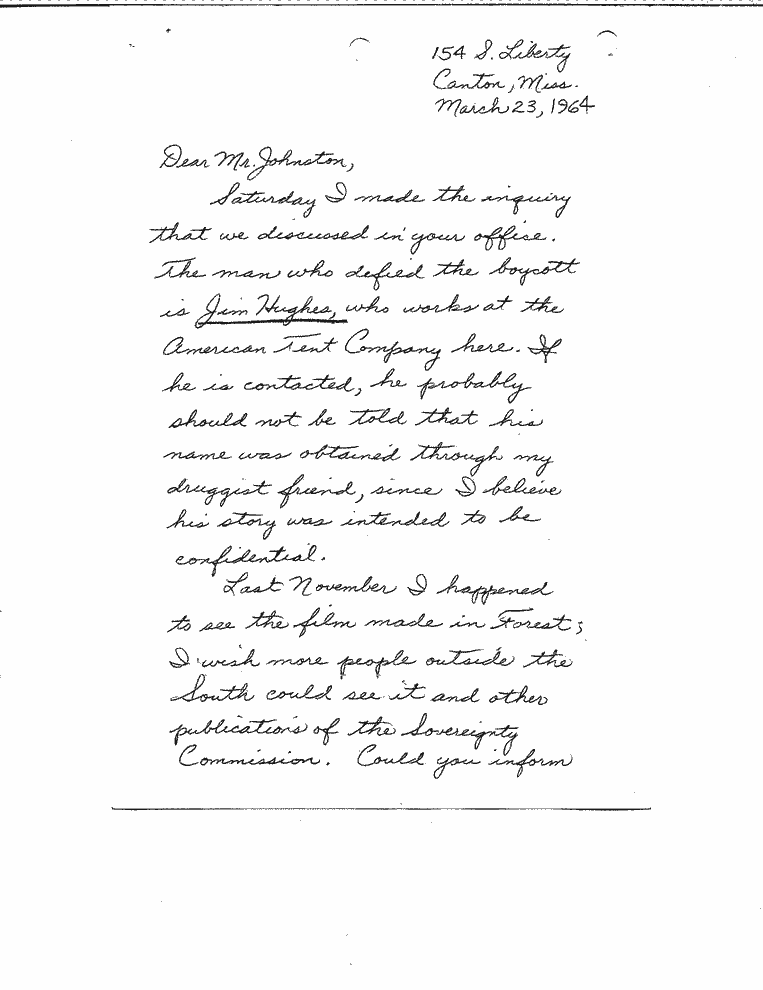 154 S. Liberty
Canton, Miss.
March 23, 1964
Dear Mr. Johnston,
Saturday I made the inquiry
that we discussed in your office.
The man who defied the boycott
is Jim Hughes, who works at the
American Tent Company here. If
he is contacted, he probably
should not be told that his
name was obtained through my
druggist friend, since I believe
his story was intended to be
confidential.
Last November I happened
to see the film made in Forest;
I wish more people outside the
South could see it and other
publications of the Sovereignty
Commission. Could you inform